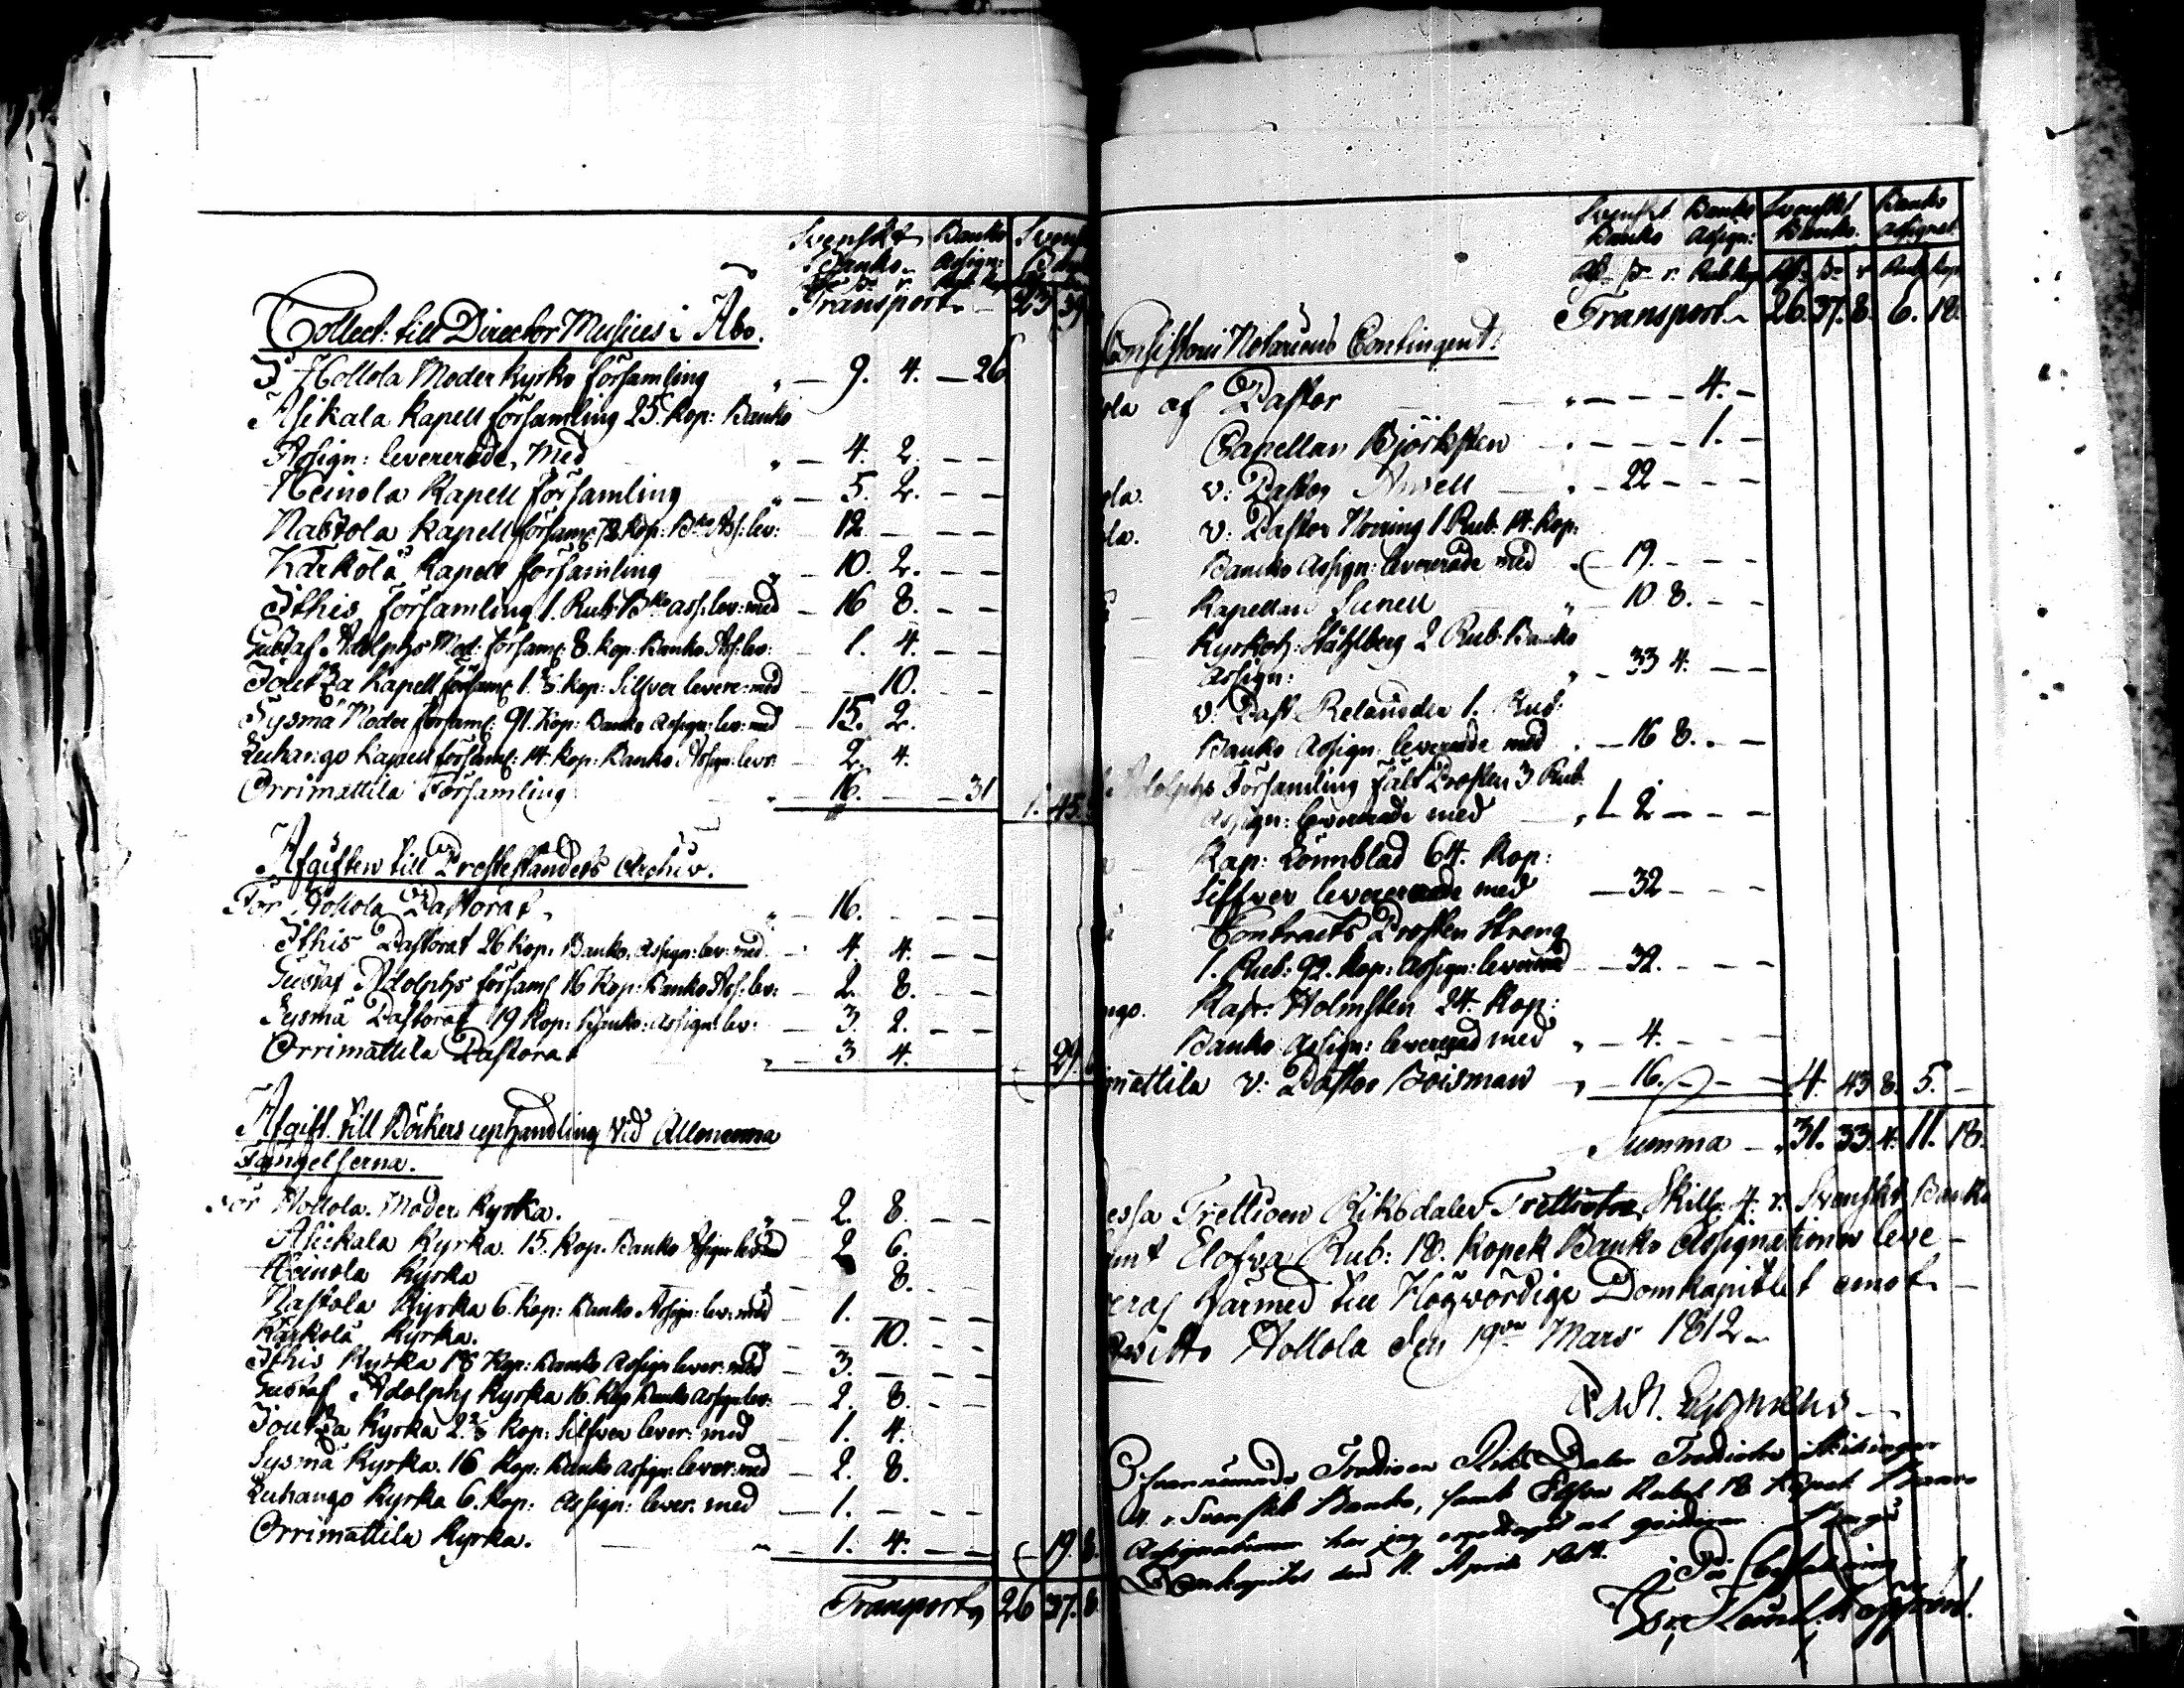 Svenskt Banko Svenskt
Banko. Assign:
Transport. 23 39
Collect: till Director Musices i Åbo.
I Hollola Moder kyrko församling " — 9. 4. — 26
Asikala kapell församling 25. kop: Banko
Assign: levererade, med " — 4. 2. — —
Heinola Kapell församling " — 5. 2. — —
Nastola kapell församl: 72 kop: Bko Ass: lev: 12. — — —
Kärkölä Kapell församling " — 10. 2. — —
Ithis församling 1. Rub: Bko ass: lev: med — 16 8. — —
Gustaf Adolphs Mod: församl: 8. kop: Banko Ass: lev: — 1. 4. — —
Joutza Kapell församl: 1 2/3. kop: Silfver levere: med — — 10. — —
Sysmä Moder församl: 91. Kop: Banko Assign: lev: med — 15. 2.
Luhango Kapell församl: 14. kop: Banko Assign: lever: — 2. 4.
Orrimattila Församling " — 16. — — 31 1. 45.
Afgiften till Presteståndets Archiv.
För Hollola Pastorat " — 16. — — —
Ithis Pastorat 26 Kop: Banko Assign: lev: med — 4. 4. — —
Gustaf Adolphs församl 16 Kop: Banko Ass: lev: — 2. 8. — —
Sysmä Pastorat 19 Kop: Banko: Assign: lev: — 3. 2. — —
Orrimattila Pastorat " — 3 4. 29.
Afgift till Böckers uphandling vid Allmenna
Fängelserna.
För Hollola Moder Kyrka. " — 2. 8. — —
Asickala Kyrka 15. Kop. Banko Assign: lev: med — 2 6. — —
Heinola Kyrka — 8. — —
Nastola Kyrka 6. Kop: Banko Assign: lev: med — 1. — — —
Kärkölä Kyrka. " — — 10. — —
Ithis Kyrka 18 Kop: Banko Assign lever: med — 3. — — —
Gustaf Adolphs Kyrka 16. Kop Banko Assign lev: — 2. 8. — —
Joutza Kyrka 2 2/3 Kop: Silfver lever: med — 1. 4.
Sysmä Kyrka. 16 Kop: Banko Assign: lever: med — 2. 8.
Luhango Kyrka 6. Kop: Assign: lever: med — 1. — — —
Orrimattila Kyrka. — 1. 4. — — 19. 8.
Transport, 26 37. 8
Svenskt Banko Svenskt Banko
Banko Assign: Banko. Assignat
Transport. 26. 37. 8. 6. 18.
Consistorii Notariens Contingent.
ola af Pastor — — — 4. —
Capellan Björksten — — — 1. —
ola. v: Pastor — 22 — — —
ola. v: Pastor Noring 1 Rub. 14. Kop:
Banko Assign: levererade med — 19. — — —
Kapellan " — 10 8. — —
Kyrkoh: Ståhlberg 2 Rub: Banko
Assign: " — 33 4. — —
v: Past Relander 1. Rub:
Banko Assign: levererade med — 16 8. — —
Adolphs Församling fält Prosten 3 Rub.
Assign: levererade med " 1 2 — — —
Kap: Lönnblad 64. Kop:
Silfver levererade med — 32 — — —
Contracts Prosten Streng
1. Rub: 92. Kop: Assign: leverad — 32. — — —
ngo. Kap: Holmsten 24. Kop:
Banko Assign: levererad med " — 4. — — —
mattila v: Pastor Boisman " — 16. — — — 4. 43 8. 5. —
Summa — 31. 33. 4. 11. 18.
essa Trettioen Riksdaler Trettiotre Skill: 4. r. Svenskt Banko
amt Elofva Rub: 18. Kopek Banko Assignationer leve-
reras härmed till Högvördige Domkapitlet emot
qvitto Hollola den 19de Mars 1812
Ofvannämnde Trettioen Riks Daler Trettiotre Skillingar
4. r. Svenskt Banko, samt Elfva Rubel 18 Kopek Banco
Assignationer har jag
Domkapitel den 11. April 1812.